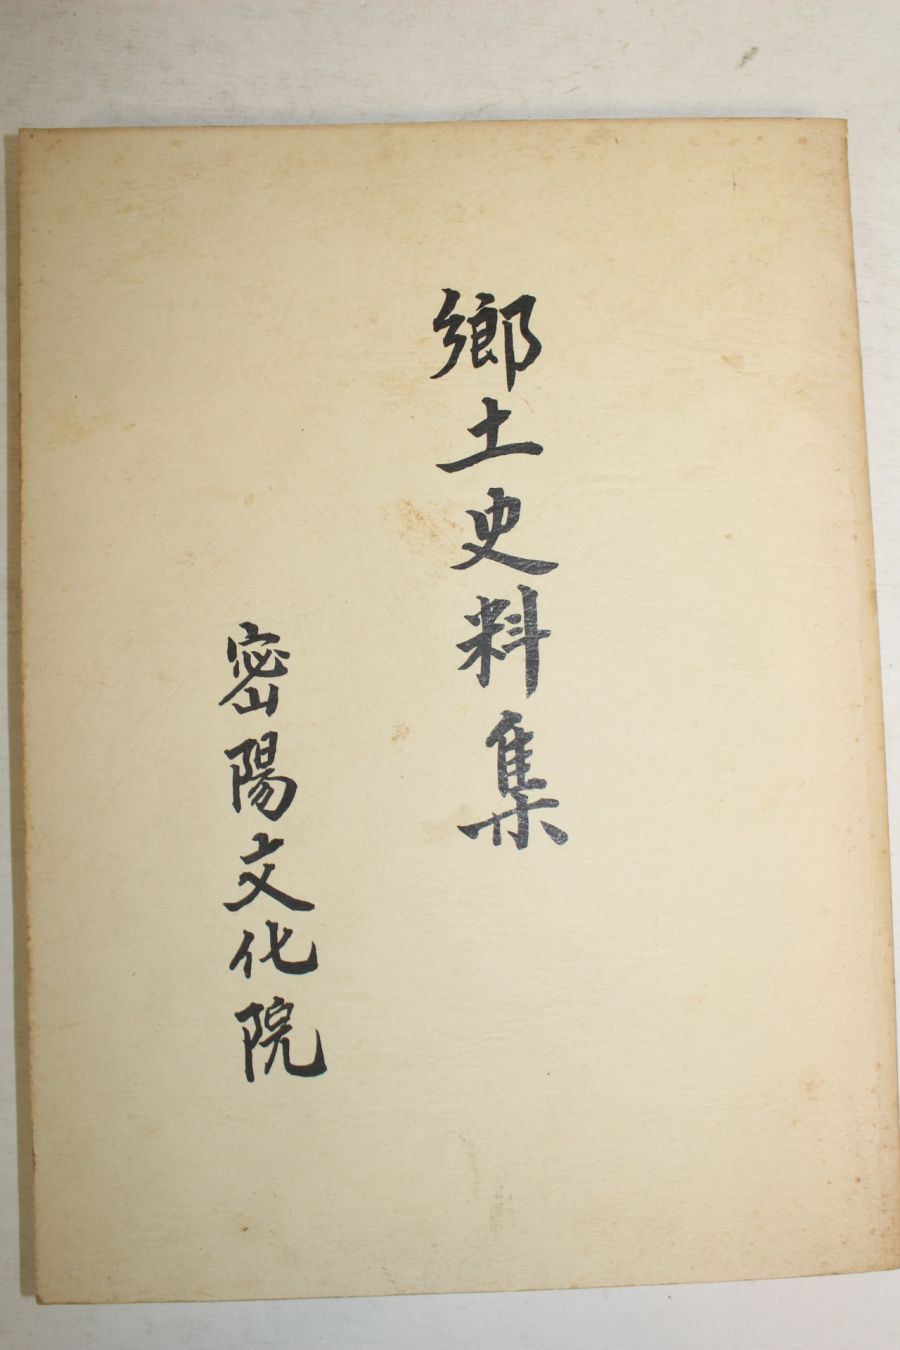 鄉土史料集
密陽文化院